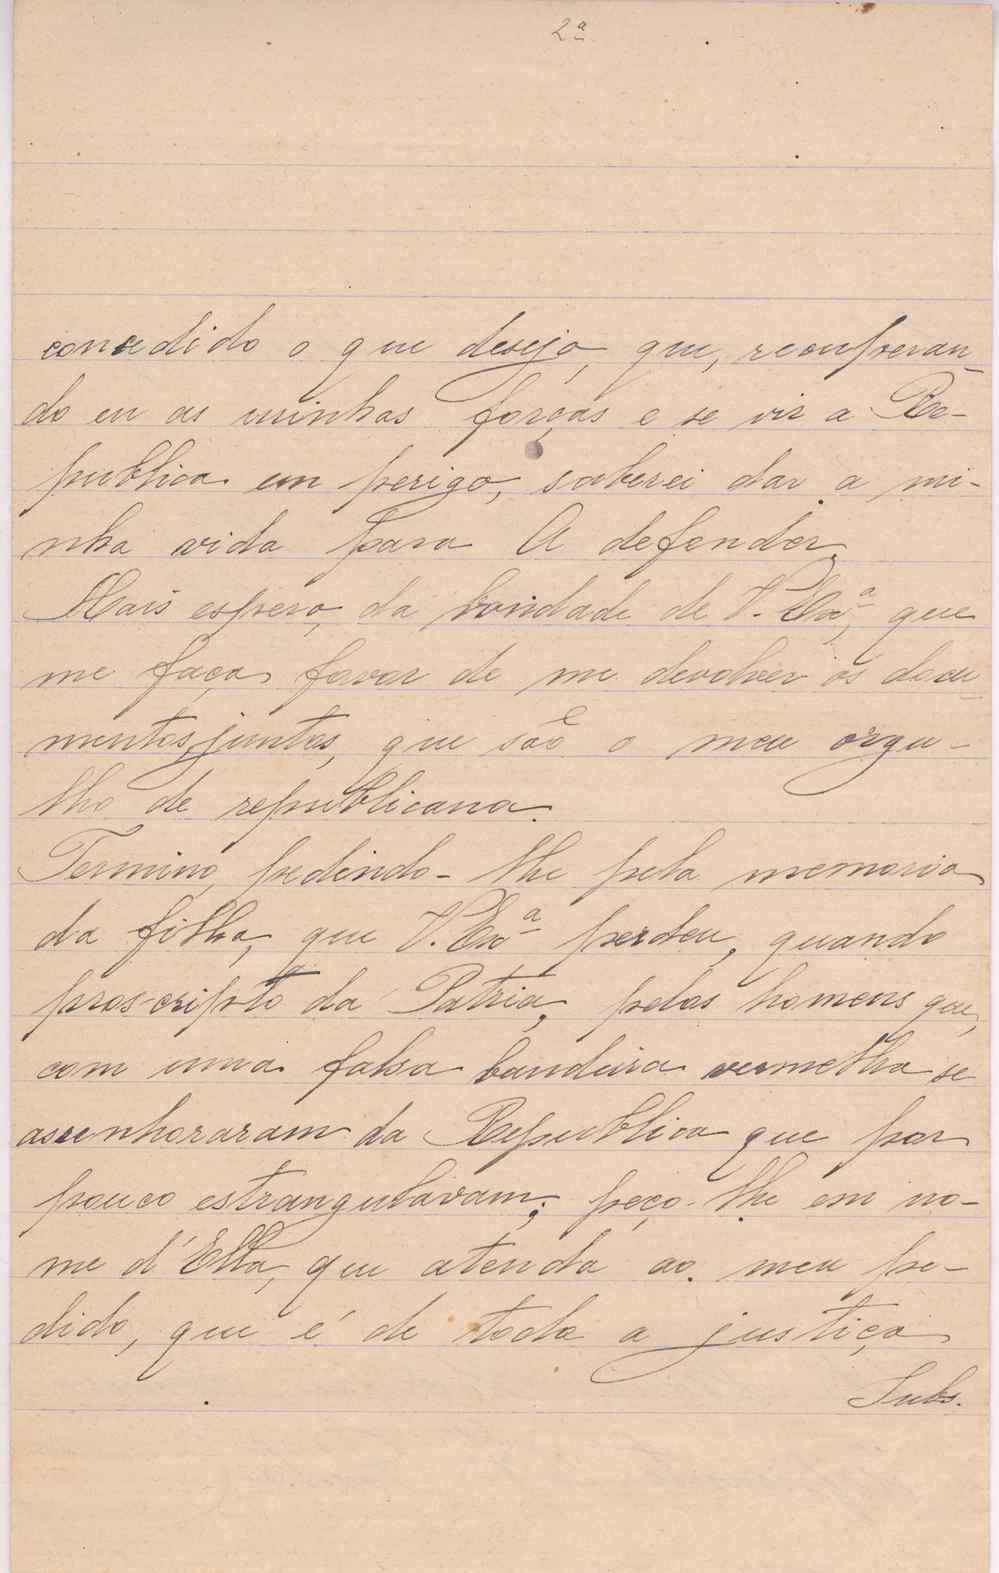 2ª
concedido o que desejo, que, recuperan-
do eu as minhas forças e se vir a Re-
publica em perigo, saberei dar a mi-
nha vida para A defender.
Mais espero, da bondade de V. Exª, que
me faça favor de me devolver os docu-
mentos juntos, que são o meu orgu-
lho de republicana.
Termino, pedindo-lhe pela memoria
da filha, que V. Exª perdeu, quando
proscripto da Patria, pelos homens que,
com uma falsa bandeira vermelha se
assenhoraram da Republica que por
pouco estrangulavam; peço-lhe em no-
me d'Ella, que atenda ao meu pe-
dido, que é de toda a justiça
Subs.